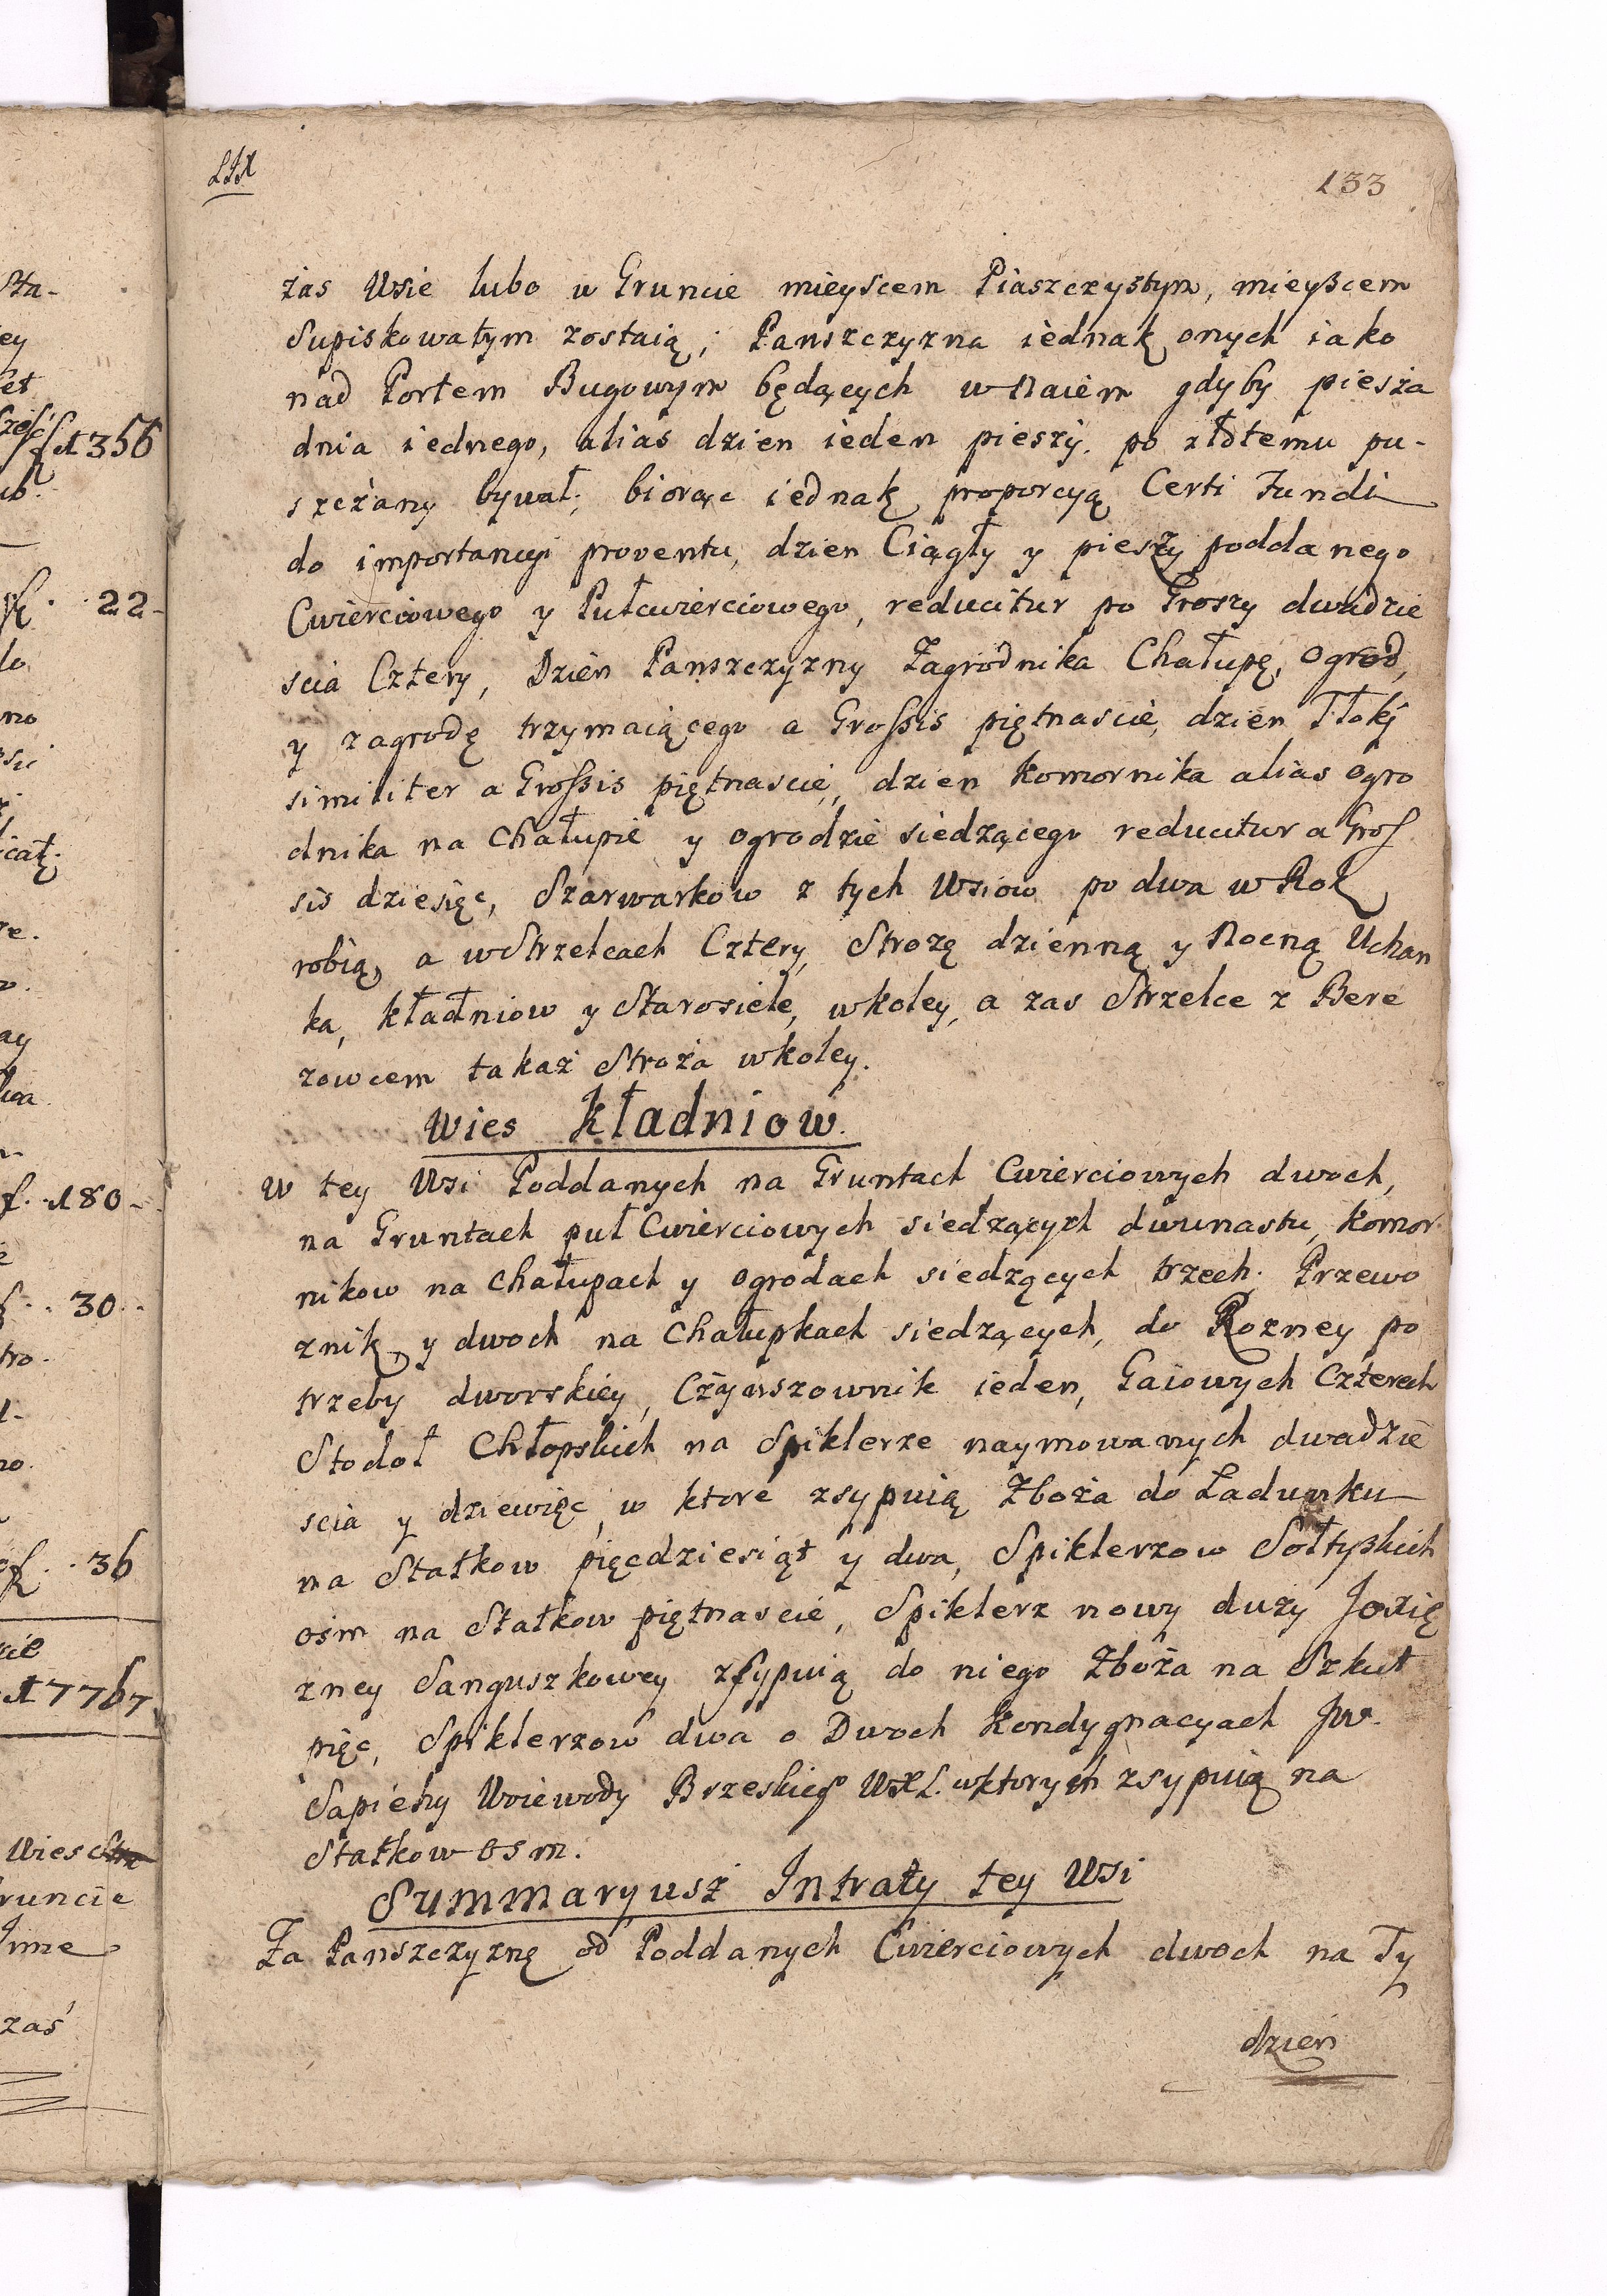 133
żas Wsie lubo w Gruncie mieyscem Piaszczystym, mieyscem
Supiskowatym zostaią; Panszczyzna iednak onych iako
nad Portem Bugowym będących w Naiem gdyby piesża
dnia iednego, alias dzien ieden pieszy. po złotemu pu-
szczany bywał; biorąc iednak proporcyą Certi Fundi
do importancyi proventu, dzien Ciągły y pieszy poddanego
Cwierciowego y Pułcwierciowego, reducitur po Groszy dwadzie
scia Cztery, Dzien Panszczyzny Zagrodnika Chałupę, Ogrod,
y zagrodę trzymaiącego a Grossis piętnascie, dzien Tłoki
similiter a Grossis piętnascie, dzien Komornika alias Ogro
dnika na Chałupie y Ogrodzie siedzącego reducitur a Gros
sis dziesięc, Szarwarkow z tych Wsiow po dwa w Rok
robią, a w Strzelcach Cztery, Strozę dzienną y Nocną Uchan
ka, Kładniow y Starosiele, w koley, a zas Strzelce z Bere
zowcem takaż Stroża w koley.
Wies Kładniow.
W tey Wsi Poddanych na Gruntach Cwierciowych dwoch,
na Gruntach puł Cwierciowych siedzących dwunastu, Komor
nikow na Chałupach y Ogrodach siedzących trzech. Przewo
znik, y dwoch na Chałupkach siedzących, do Rozney po
trzeby dworskiey, Czynszownik ieden, Gaiowych Czterech
Stodoł Chłopskich na Spiklerze naymowanych dwadzie
scia y dziewięc, w ktore zsypuią Zboża do Ladunku
na Statkow pięcdziesiąt y dwa, Spiklerzow Sołtyskich
ośm na Statkow piętnascie, Spiklerz nowy duży
zney Sanguszkowey zsypuią do niego Zboża na Szkut
pięc, Spiklerzow dwa o Dwoch Kondygnacyach JW.
Sapiehy Woiewody Brzeskiego WXL. w ktorych zsypuią na
Statkow osm.
Summaryusz Intraty tey Wsi
Za Panszczyznę od Poddanych Cwierciowych dwoch na Ty
dzien
356
22
180
30
36
7767
Wies
runcie
zaś